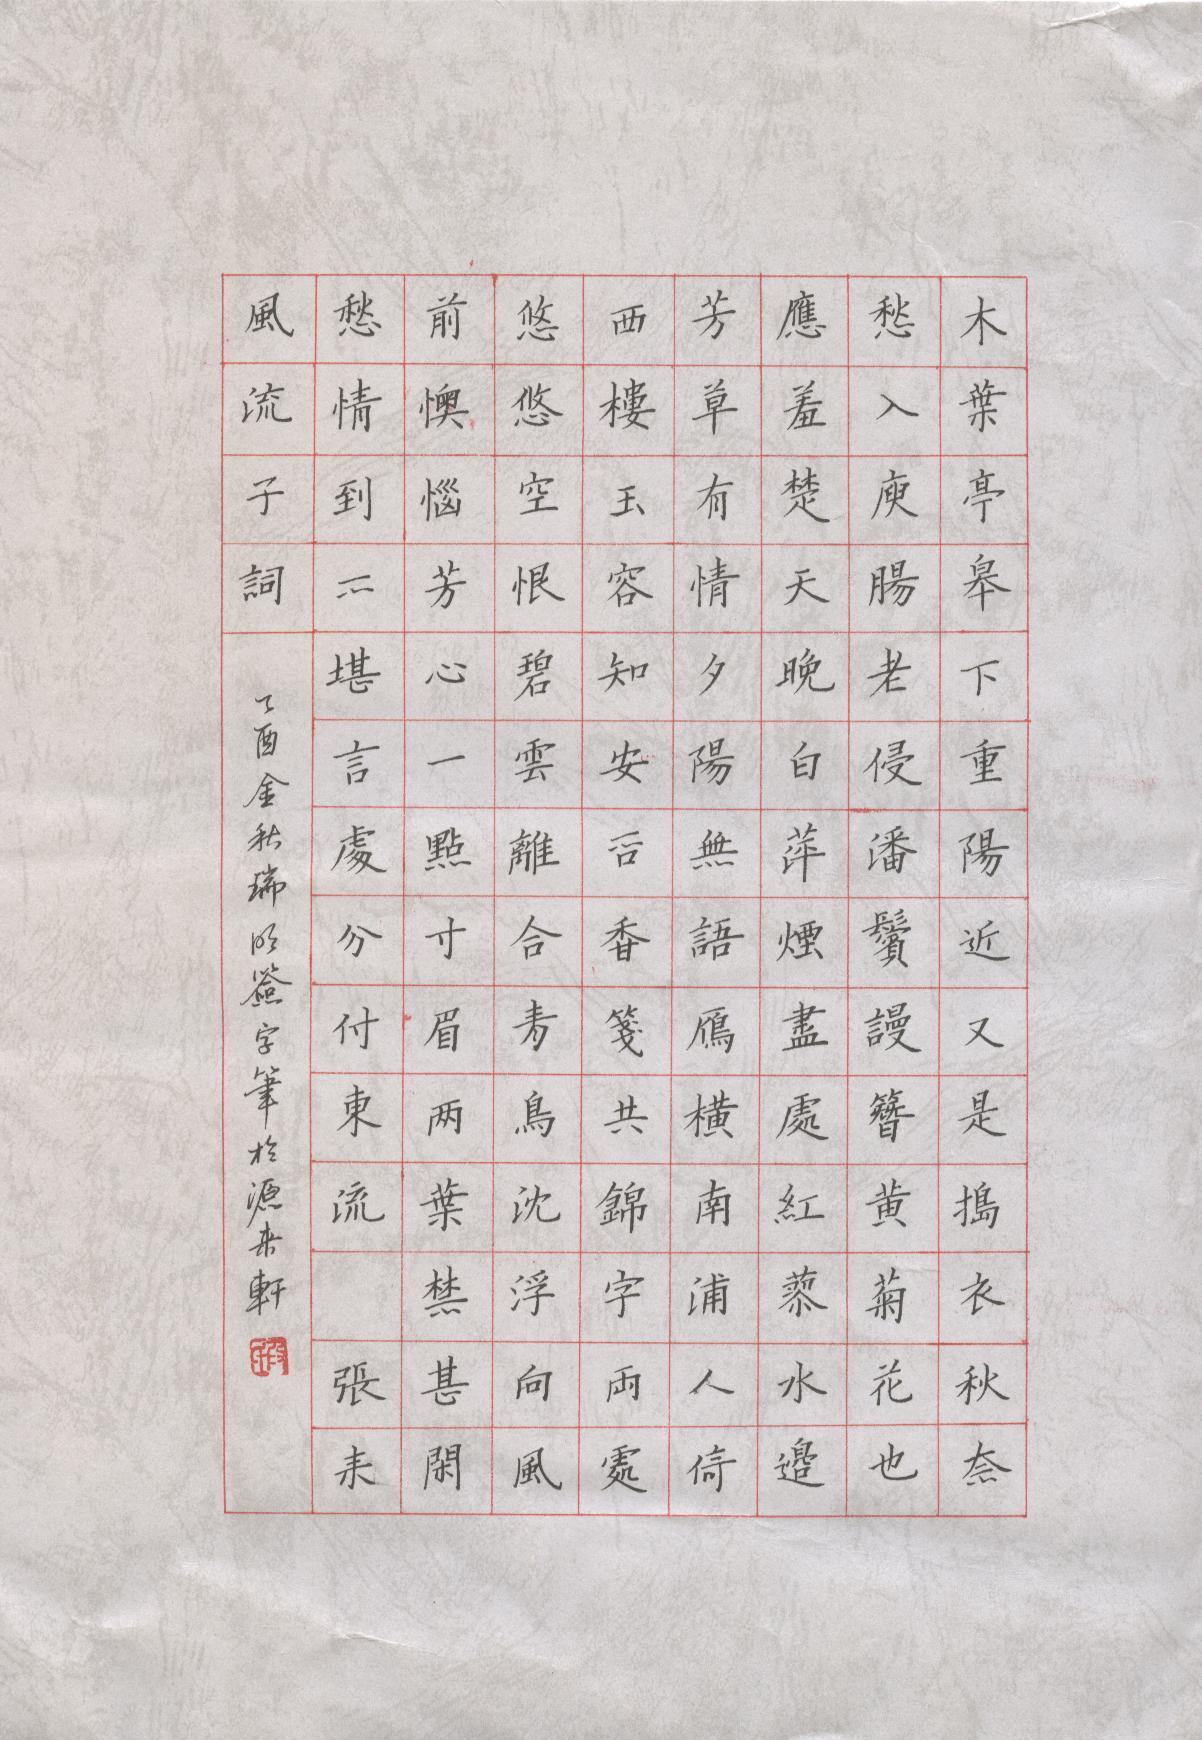 木葉亭皋下重陽近又是搗衣秋奈
愁入庾腸老侵潘鬢謾簪黃菊花也
應羞楚天晚白萍煙盡處紅蓼水邊
芳草有情夕陽無語鴈橫南浦人倚
西樓玉容知安否香箋共錦字兩處
悠悠空恨碧雲離合青鳥沈浮向風
前懊惱芳心一點寸眉兩葉禁甚閑
愁情到不堪言處分付東流 張耒
風流子詞
乙酉金秋瑞明簽字筆於源來軒